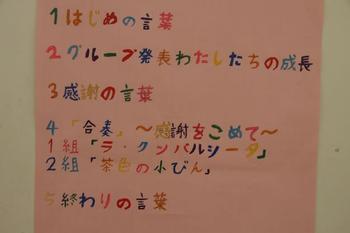 1はじめの言葉
2グループ発表わたしたちの成長
3感謝の言葉
4「合奏」〜感謝をこめて〜
1組「ラ・クンパルシータ」
2組「茶色の小びん」
5終わりの言葉